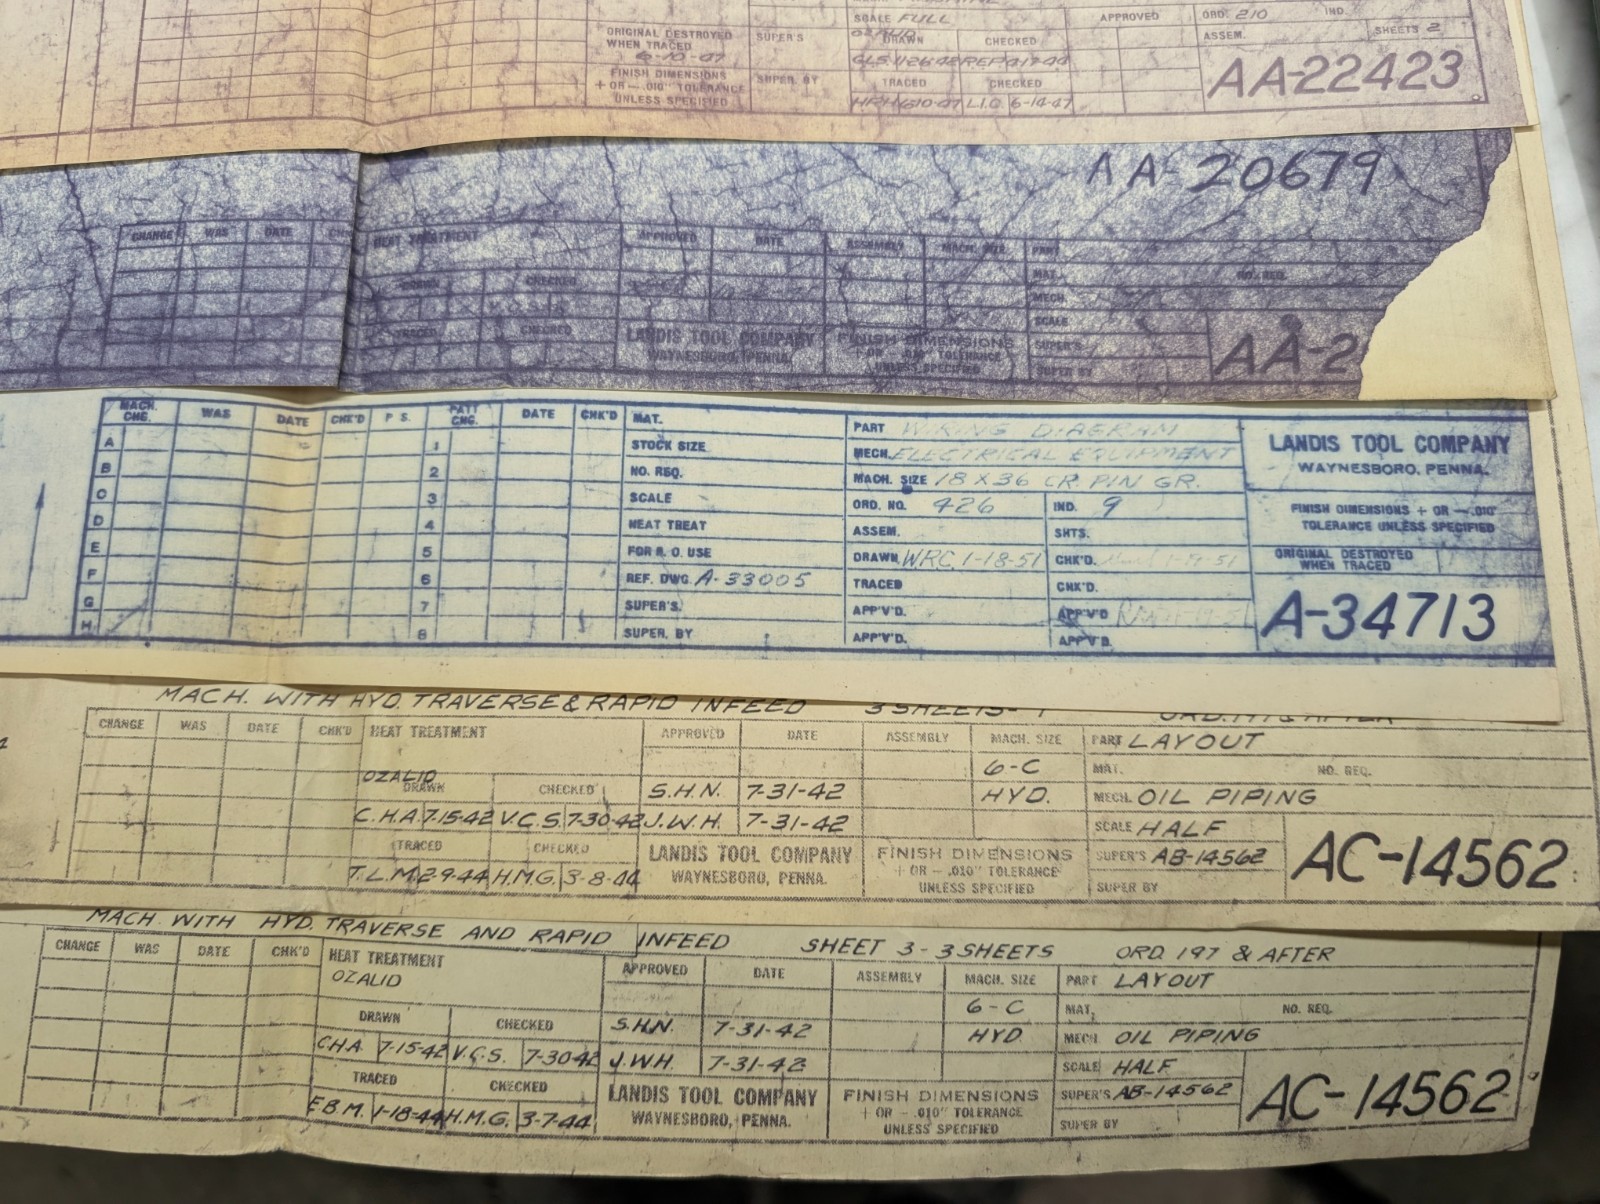 SCALE FULL
APPROVED
ORD. 210 IND.
ORIGINAL DESTROYED
WHEN TRACED
6-10-47
SUPER'S
DRAWN CHECKED
ASSEM. SHEETS 2
FINISH DIMENSIONS
+ OR - .010" TOLERANCE
UNLESS SPECIFIED
SUPER. BY
TRACED CHECKED
6-10-47 L.I.C. 6-14-47
AA-22423
AA-20679
CHANGE WAS DATE
HEAT TREATMENT
APPROVED DATE ASSEMBLY MACH. SIZE PART
MAT. NO. REQ.
CHECKED
MECH.
SCALE
TRACED CHECKED
LANDIS TOOL COMPANY
WAYNESBORO, PENNA.
FINISH DIMENSIONS
+ OR - .010" TOLERANCE
UNLESS SPECIFIED
SUPER'S
SUPER BY
AA-2
MACH. CHG. WAS DATE CHK'D P S. PATT CHG. DATE CHK'D
A
B
C
D
E
F
G
H
1
2
3
4
5
6
7
8
MAT.
STOCK SIZE
NO. REQ.
SCALE
HEAT TREAT
FOR R. O. USE
REF. DWG. A-33005
SUPER'S.
SUPER. BY
PART WIRING DIAGRAM
MECH. ELECTRICAL EQUIPMENT
MACH. SIZE 18 X 36 CR. PIN GR.
ORD. NO. 426 IND. 9
ASSEM. SHTS.
DRAWN WRC 1-18-51 CHK'D.
TRACED CHK'D.
APP'V'D. APP'V'D
APP'V'D. APP'V'D.
LANDIS TOOL COMPANY
WAYNESBORO, PENNA.
FINISH DIMENSIONS + OR - .010"
TOLERANCE UNLESS SPECIFIED
ORIGINAL DESTROYED
WHEN TRACED
A-34713
MACH. WITH HYD. TRAVERSE & RAPID INFEED 3 SHEETS- ORD. 197 & AFTER
CHANGE WAS DATE CHK'D HEAT TREATMENT
APPROVED DATE ASSEMBLY MACH. SIZE PART LAYOUT
6-C MAT. NO. REQ.
OZALID
DRAWN CHECKED
S.H.N. 7-31-42 HYD. MECH. OIL PIPING
C.H.A. 7-15-42 V.C.S. 7-30-42 J.W.H. 7-31-42
SCALE HALF
TRACED CHECKED
LANDIS TOOL COMPANY
WAYNESBORO, PENNA.
FINISH DIMENSIONS
+ OR - .010" TOLERANCE
UNLESS SPECIFIED
SUPER'S AB-14562
T.L.M. 2-9-44 H.M.G. 3-8-44
SUPER BY
AC-14562
MACH. WITH HYD. TRAVERSE AND RAPID INFEED SHEET 3 - 3 SHEETS ORD. 197 & AFTER
CHANGE WAS DATE CHK'D HEAT TREATMENT
OZALID
APPROVED DATE ASSEMBLY MACH. SIZE PART LAYOUT
6-C MAT. NO. REQ.
DRAWN CHECKED
S.H.N. 7-31-42 HYD MECH. OIL PIPING
C.H.A. 7-15-42 V.C.S. 7-30-42 J.W.H. 7-31-42
SCALE HALF
TRACED CHECKED
LANDIS TOOL COMPANY
WAYNESBORO, PENNA.
FINISH DIMENSIONS
+ OR - .010" TOLERANCE
UNLESS SPECIFIED
SUPER'S AB-14562
F.B.M. 1-18-44 H.M.G. 3-7-44
SUPER BY
AC-14562